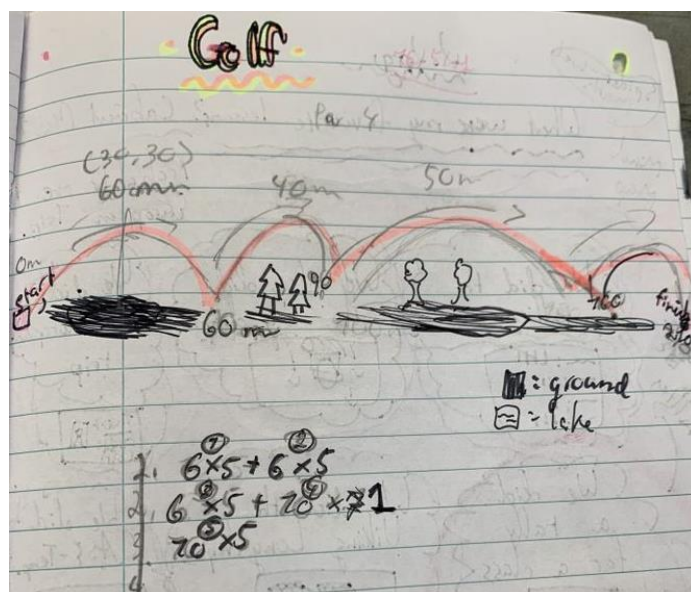 Golf
Par 4
(30,30)
60 mm 40m 50m
0m
start
90
60 m
160
finish
▮ = ground
= lake
1. 6 ① ×5 + 6 ② ×5
2. 6 ③ ×5 + 20 ④ × 1
3 20 ⑤ ×5
4